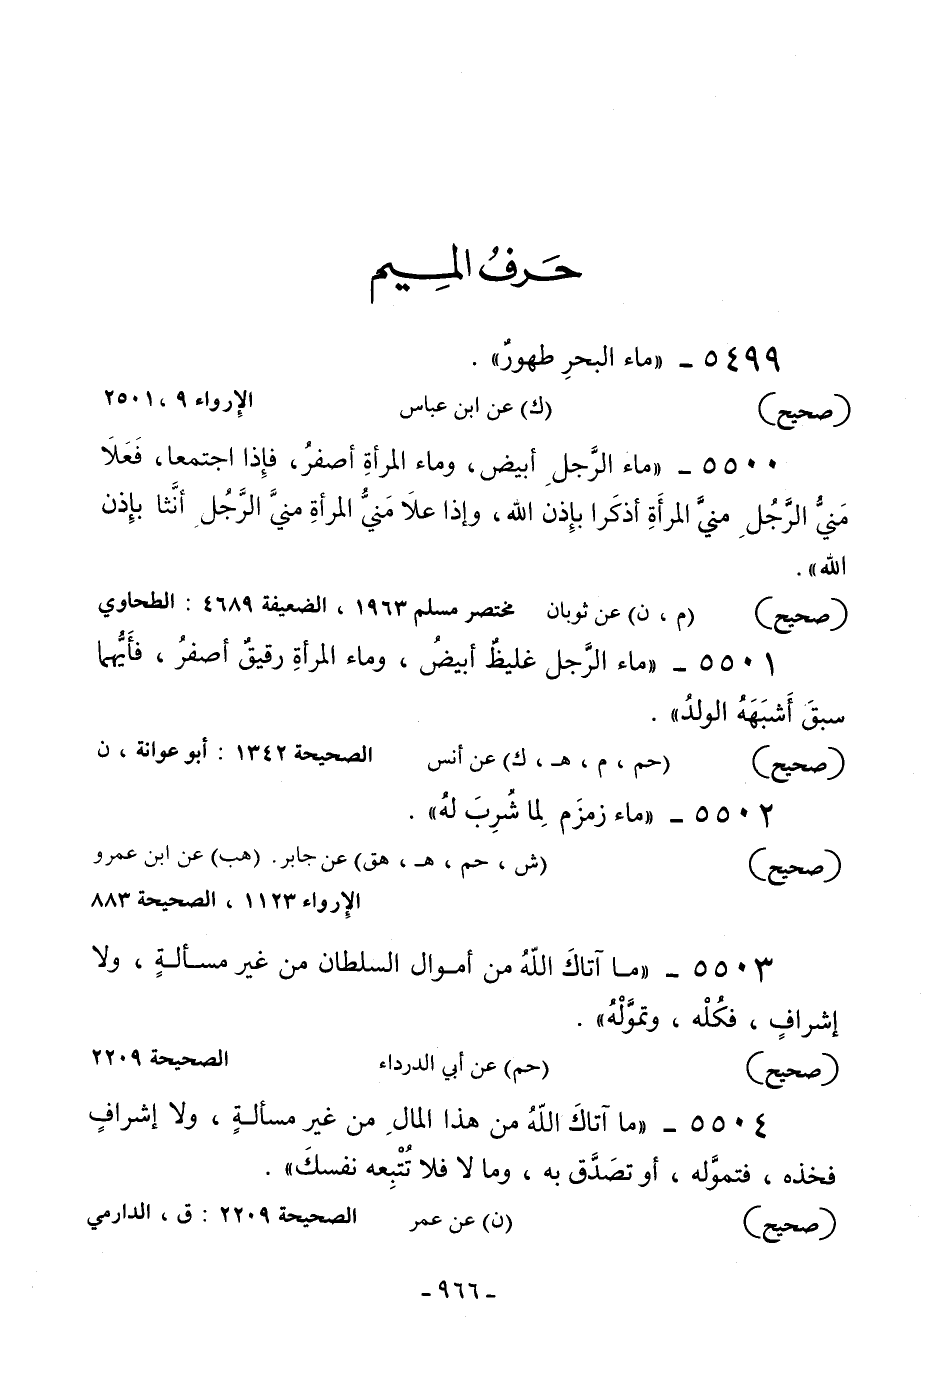 حَرفُ المِيم
٥٤٩٩ ـ «ماء البحرِ طهورٌ» .
(صحيح) (ك) عن ابن عباس الإرواء ٩ ، ٢٥٠١
٥٥٠٠ ـ «ماء الرَّجلِ أبيض، وماء المرأةِ أصفرُ، فإِذا اجتمعا، فَعَلَا
مَنيُّ الرَّجُلِ منيَّ المرأَةِ أذكَرا بإِذن الله، وإذا علَا مَنيُّ المرأةِ منيَّ الرَّجُلِ أنَّثا بإِذن
الله» .
(صحيح) (م ، ن) عن ثوبان مختصر مسلم ١٩٦٣ ، الضعيفة ٤٦٨٩ : الطحاوي
٥٥٠١ ـ «ماء الرَّجل غليظٌ أبيضُ ، وماء المرأةِ رقيقٌ أصفرُ ، فأَيُّهما
سبقَ أَشبَهَهُ الولدُ» .
(صحيح) (حم ، م ، هـ ، ك) عن أنس الصحيحة ١٣٤٢ : أبو عوانة ، ن
٥٥٠٢ ـ «ماء زمزَم لِما شُرِبَ لهُ» .
(صحيح) (ش ، حم ، هـ ، هق) عن جابر. (هب) عن ابن عمرو
الإرواء ١١٢٣ ، الصحيحة ٨٨٣
٥٥٠٣ ـ «ما آتاكَ اللّهُ من أموال السلطان من غير مسألةٍ ، ولا
إشرافٍ ، فكُلْه ، وتموَّلْهُ» .
(صحيح) (حم) عن أبي الدرداء الصحيحة ٢٢٠٩
٥٥٠٤ ـ «ما آتاكَ اللّهُ من هذا المالِ من غير مسألةٍ ، ولا إشرافٍ
فخذه ، فتموَّله ، أو تصَدَّق به ، وما لا فلا تُتْبِعه نفسكَ» .
(صحيح) (ن) عن عمر الصحيحة ٢٢٠٩ : ق ، الدارمي
ـ ٩٦٦ ـ